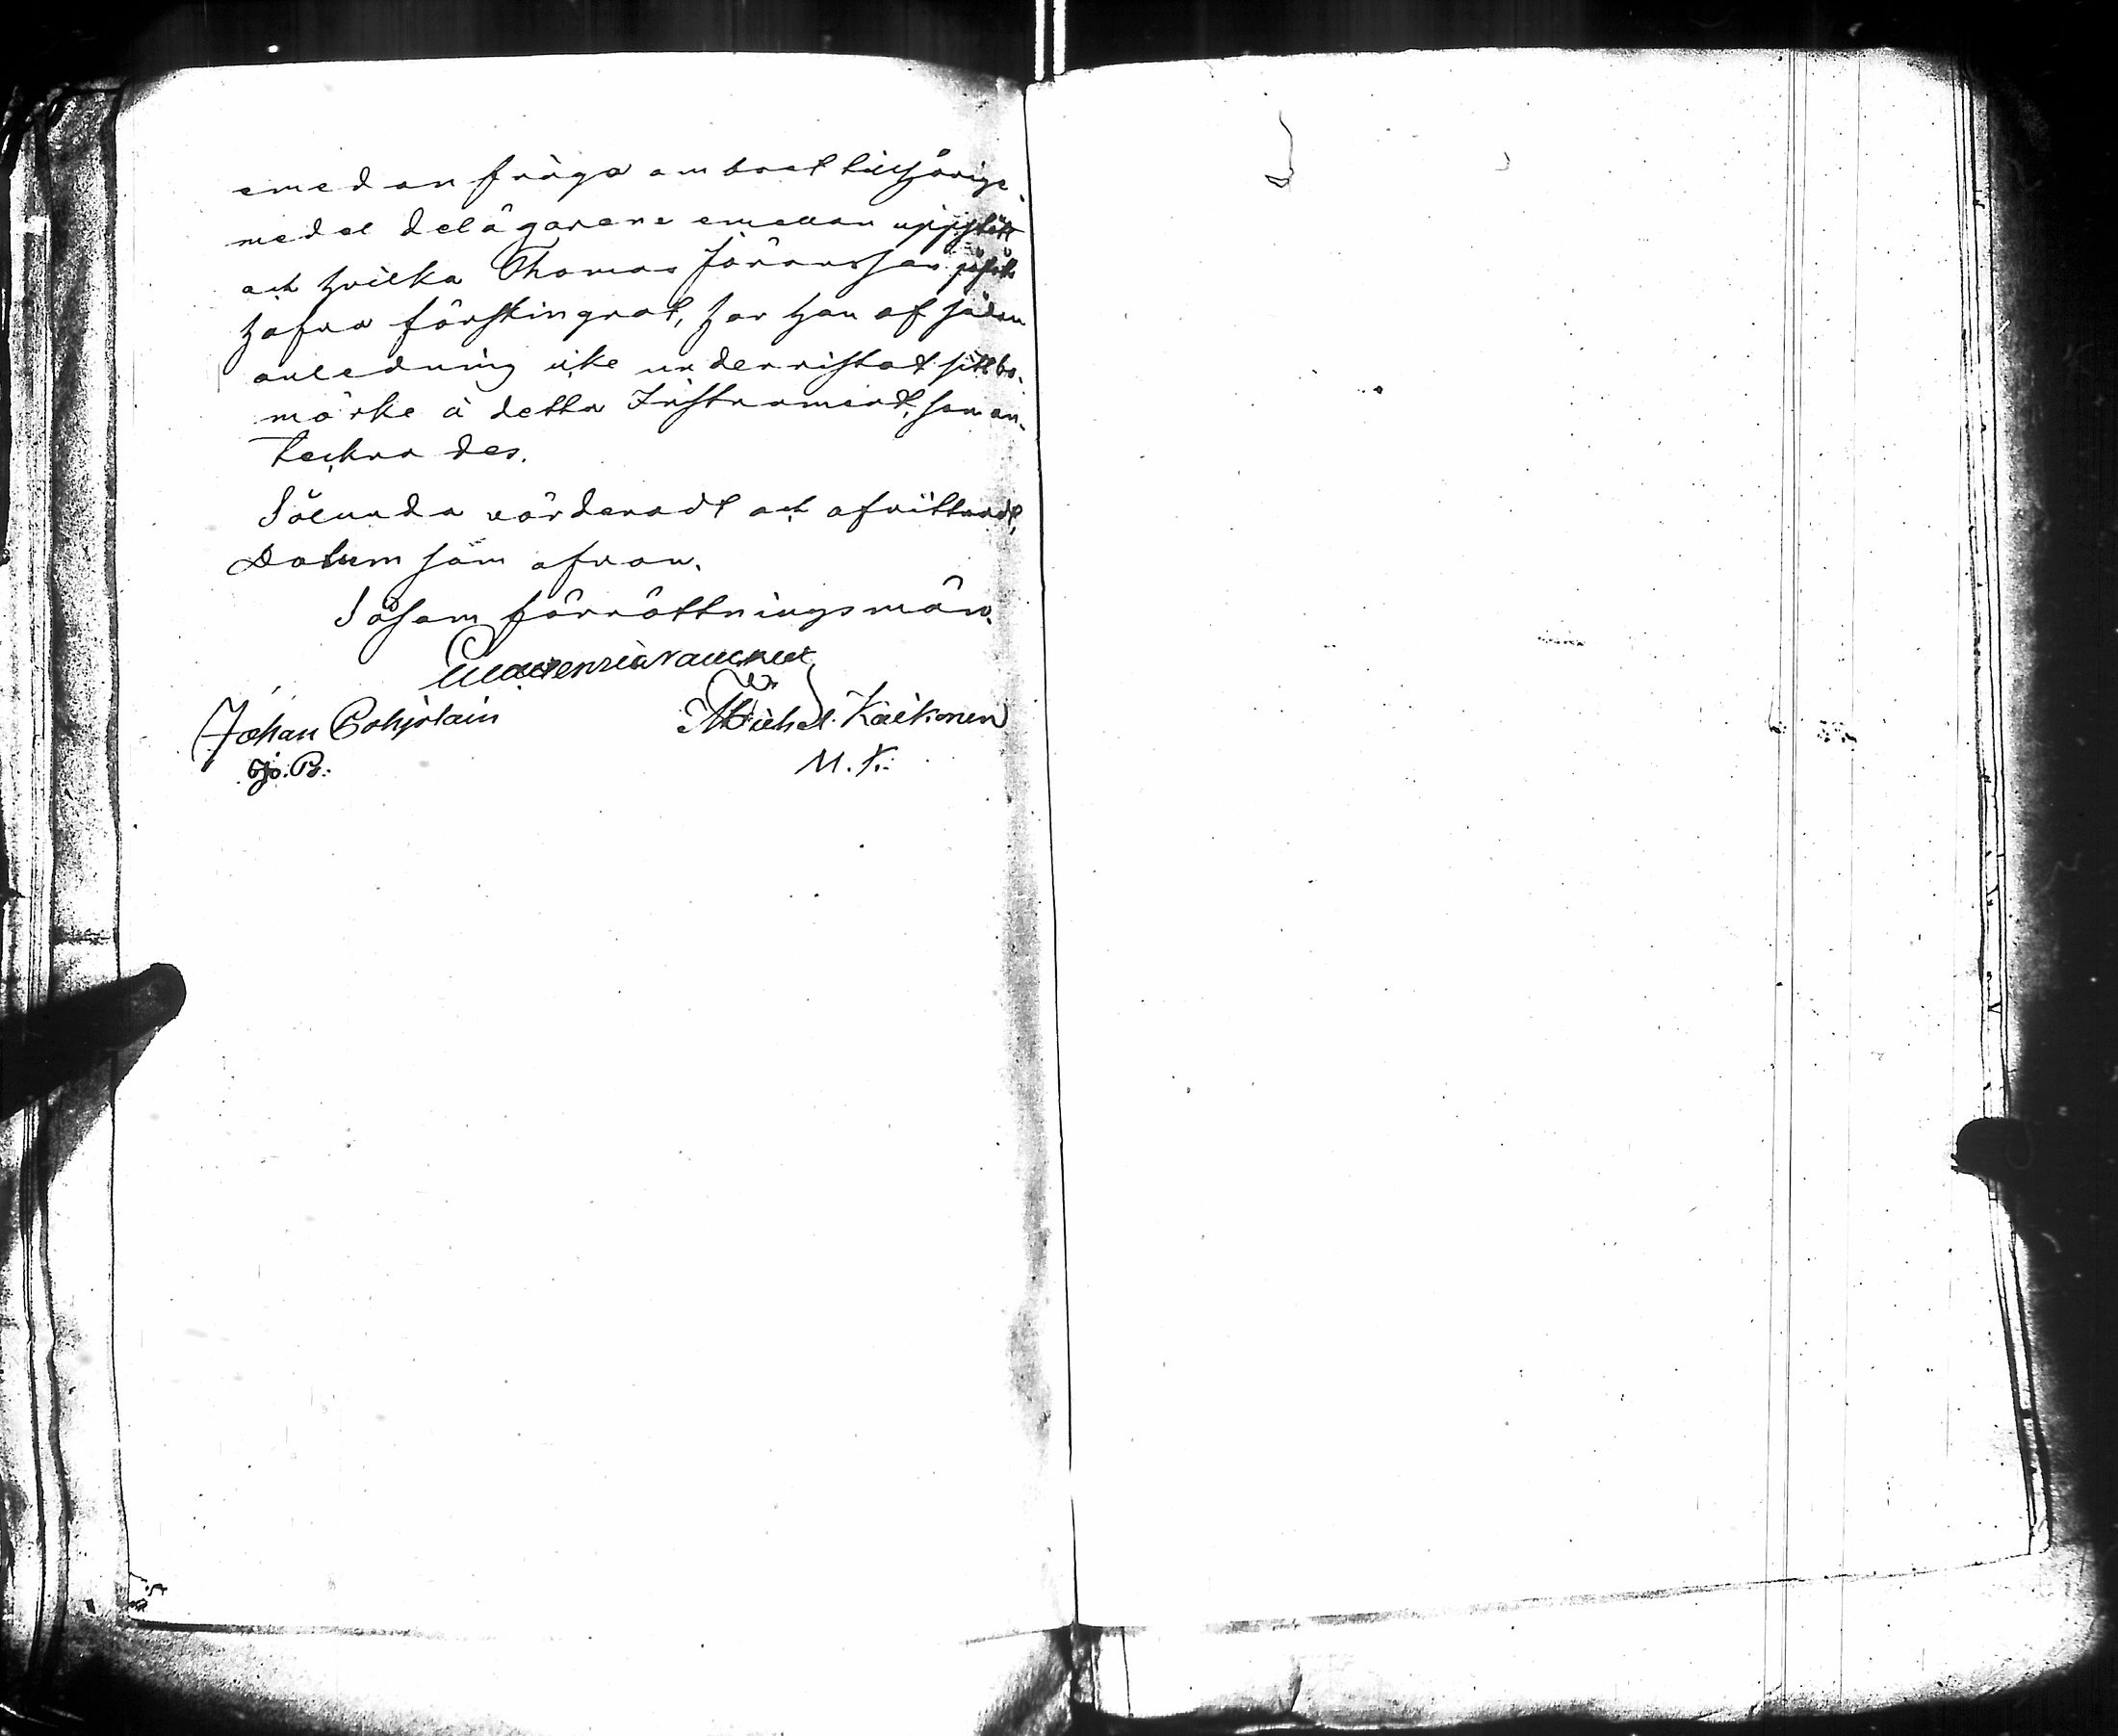 emedan fråga om boet tillhörige
medel delägarene emellan uppstått
och hvilka Thomas Jöransson påstås
hafva förskingrat, har han af sådan
anledning icke underristat sitt bo-
märke å detta Instrument, som an-
tecknades.
Sålunda värderadt och afvittradt,
Datum som ofvan.
Såsom förrättningsmän.
Johan Pohjolain Michel Kaikonen
Jo. P. M. K.